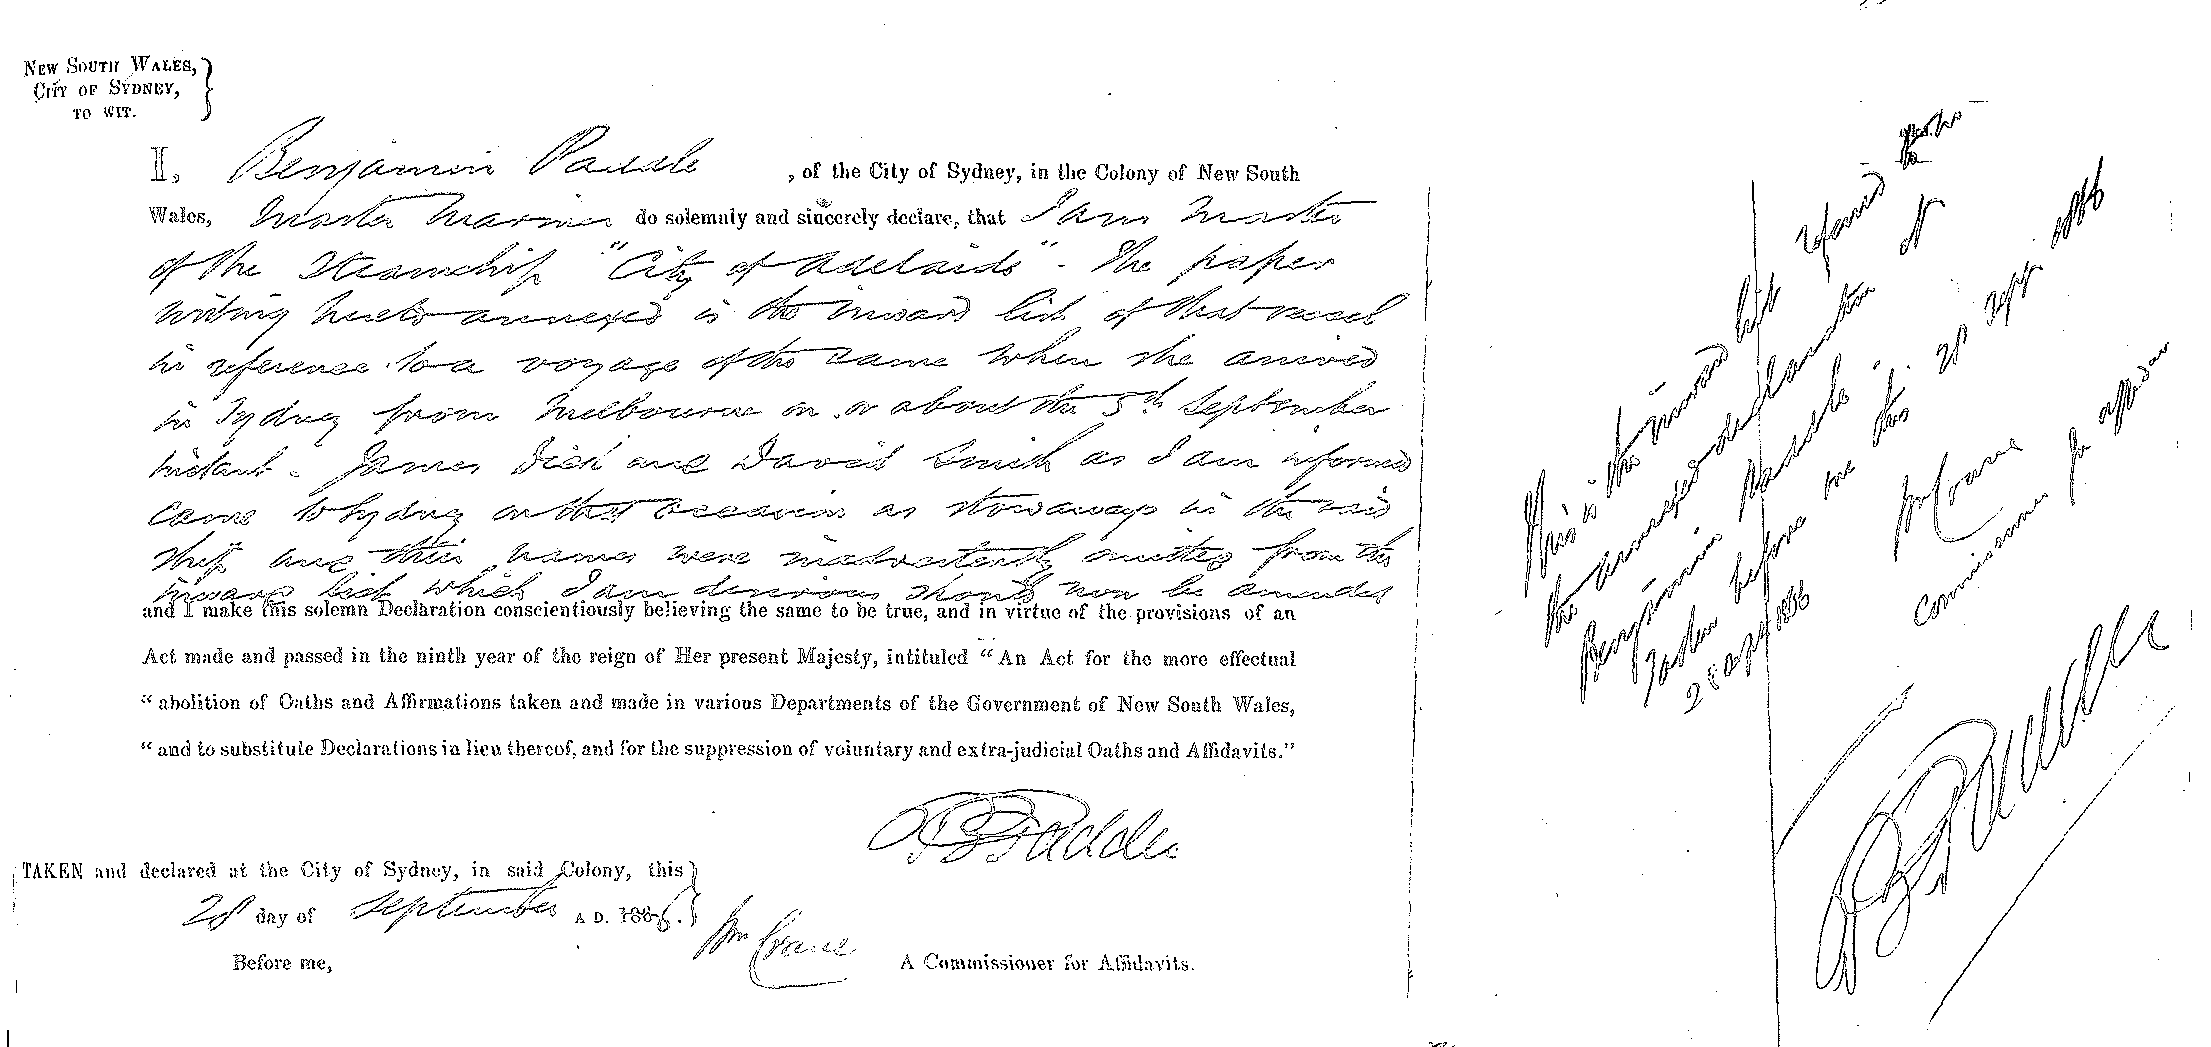 NEW SOUTH WALES,
CITY OF SYDNEY,
TO WIT.
I, Benjamin , of the City of Sydney, in the Colony of New South
Wales, Master Mariner do solemnly and sincerely declare, that I am Master
of the Steamship "City of Adelaide" - The paper
writing hereto annexed is the inward list of that vessel
in reference to a voyage of the same when she arrived
in Sydney from Melbourne on or about the 5th September
instant - James Dick and David Smith as I am informed
came to Sydney on that occasion as stowaways in the said
ship and their names were inadvertently omitted from the
inward list which I am desirous should now be amended
and I make this solemn Declaration conscientiously believing the same to be true, and in virtue of the provisions of an
Act made and passed in the ninth year of the reign of Her present Majesty, intituled "An Act for the more effectual
"abolition of Oaths and Affirmations taken and made in various Departments of the Government of New South Wales,
"and to substitute Declarations in lieu thereof, and for the suppression of voluntary and extra-judicial Oaths and Affidavits."
TAKEN and declared at the City of Sydney, in said Colony, this
28 day of September A D. 1886.
Before me,
Wm Crane
A Commissioner for Affidavits.
This is the inward list referred to in
the annexed declaration of
Benjamin
Taken before me this 28 Sept 1886
28 Sept 1886
Wm Crane
Commissioner for affidavits